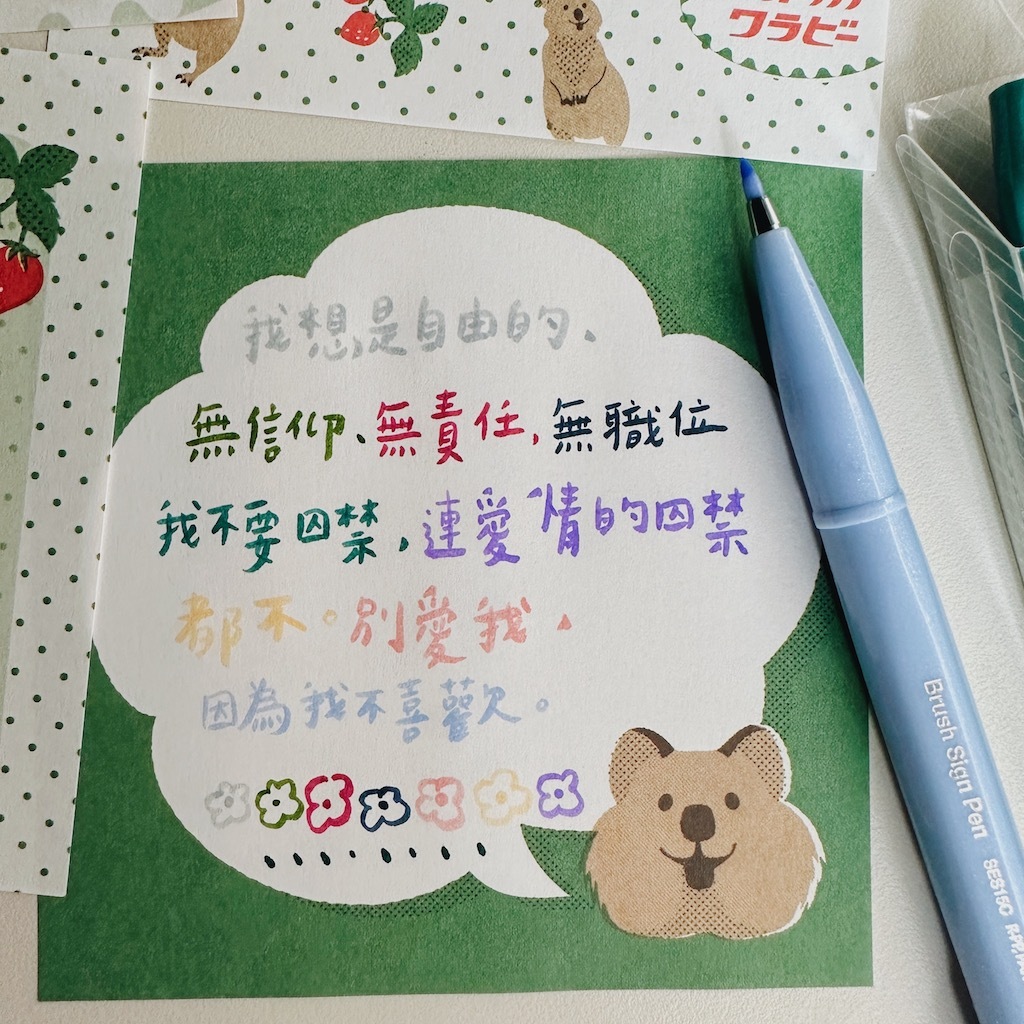 ワラビー
我想是自由的、
無信仰、無責任,無職位
我不要囚禁,連愛情的囚禁
都不。別愛我,
因為我不喜歡。
Brush Sign Pen SES15C